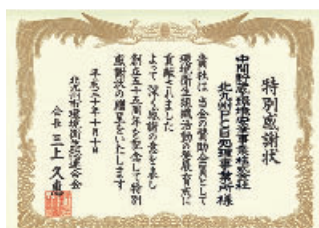 特別感謝状
中間貯蔵・環境安全事業株式会社
北九州PCB処理事業所様
貴社は当会の賛助会員として
環境衛生組織活動の発展育成に
貢献されました
よって深く感謝の意を表し
創立五十五周年を記念して特別
感謝状の贈呈をいたします
平成三十年十月十日
北九州市環境衛生総連合会
会長 三上 久恵